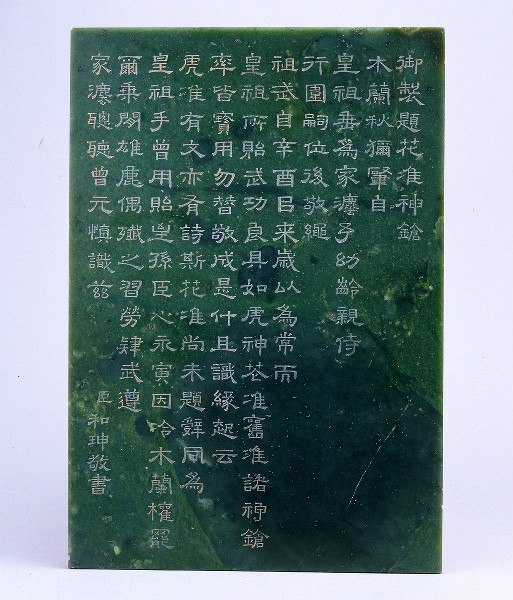 御製題花准神鎗
木蘭秋獮肇自
皇祖垂為家灋予幼齡親侍
行圍嗣位後敬繩
祖武自辛酉㠯來歲以為常而
皇祖所貽武功良具如虎神花准舊准諸神鎗
率皆寶用勿替敬成是什且識緣起云
虎准有文亦有詩斯花准尚未題辭同為
皇祖手曾用貽皇孫臣心永寅因吟木蘭權罷
爾乘閒雄鹿偶殲之習勞肄武遵
家灋聰聽曾元慎識茲
臣和珅敬書